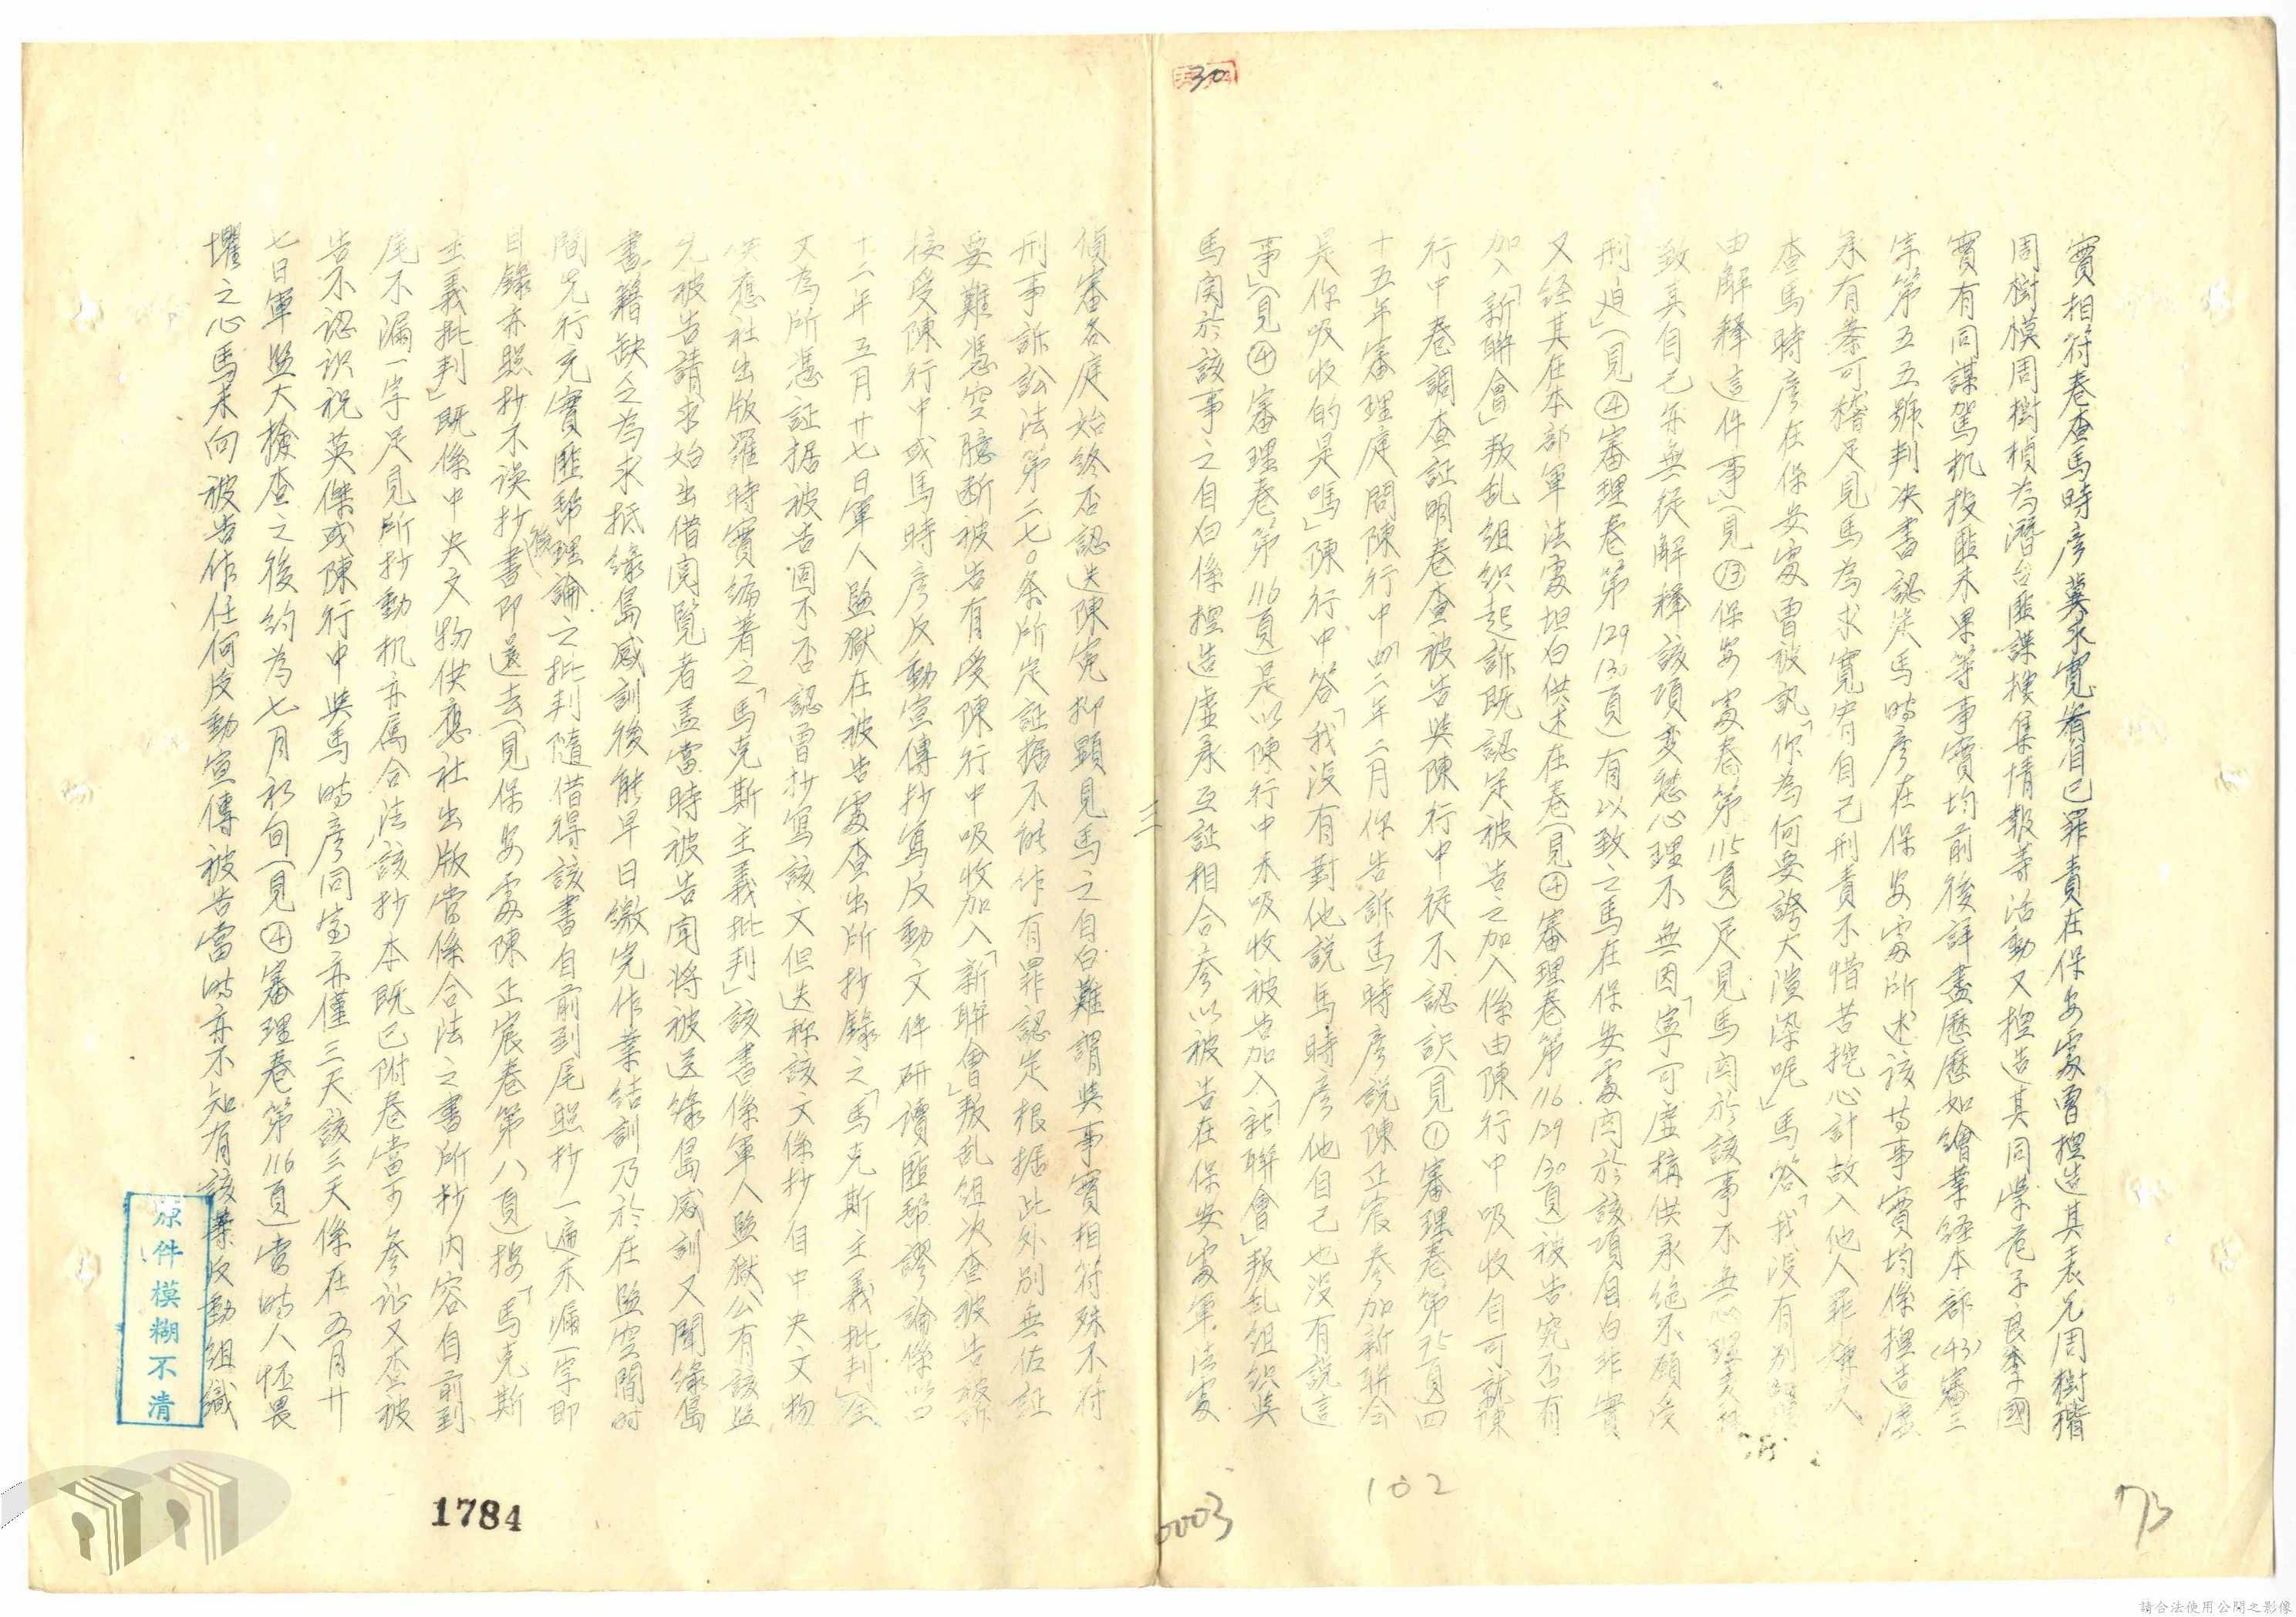 實相符卷查馬時彥冀求寬宥自己罪責在保安處曾揑造其表兄周樹楷
周樹模周樹楨為潛台匪諜搜集情報等活動又揑造其同案范子良李國
實有同謀駕机投匪未果等事實均前後詳盡歷歷如繪業経本部(43)審三
字第五五號判决書認定馬時彥在保安處所述該等事實均係揑造虛
承有案可稽足見馬為求寬宥自己刑責不惜苦挖心計故入他人罪
查馬時彥在保安處曾被訊「你為何要誇大渲染呢」馬答「我沒有別
由解釋這件事」(見⑬保安處卷第115頁)足見馬関於該事不無心理
致真自己亦無從解釋該項変態心理不無因「寧可虛構供承絕不願受
刑迫」(見④審理卷第129 130頁)有以致之馬在保安處関於該項自白非實
又経其在本部軍法處坦白供述在卷(見④審理卷第116 129 130頁)被告究否有
加入「新聯會」叛乱組织起訴既認定被告之加入係由陳行中吸收自可就陳
行中卷調查証明卷查被告與陳行中從不認訳(見①審理卷第75頁四
十五年審理庭問陳行中「四二年二月你告訴馬時彥說陳正宸参加新聯会
是你吸收的是嗎」陳行中答「我沒有對他說馬時彥他自己也沒有說這
事」(見④審理卷第116頁)是以陳行中未吸收被告加入「新聯會」叛乱組织與
馬関於該事之自白係揑造虛承互証相合參以被告在保安處軍法處
三
偵審各庭始終否認迭陳寃抑顯見馬之自白難謂與事實相符殊不符
刑事訴訟法第二七〇条所定証據不能作有罪認定根据此外別無佐証
要難憑空臆断被告有受陳行中吸收加入「新聯會」叛乱組次查被告被訴
接受陳行中或馬時彥反動宣傳抄寫反動文件研讀匪帮謬論係以四
十二年五月廿七日軍人監獄在被告處查出所抄錄之「馬克斯主義批判」全
文為所憑証据被告固不否認曾抄寫該文但迭称該文係抄自中央文物
供應社出版羅時實編著之「馬克斯主義批判」該書係軍人監獄公有該監
先被告請求始出借閱覽者蓋當時被告聞將被送綠島感訓又聞綠島
書籍缺乏為求抵綠島感訓後能早日繳完作業結訓乃於在監空閒時
間先行充實匪帮理論之批判隨借得該書自前到尾照抄一遍未漏一字即
目錄亦照抄不误抄後書即還去(見保安處陳正宸卷第八頁)按「馬克斯
主義批判」既係中央文物供應社出版當係合法之書所抄內容自前到
尾不漏一字足見所抄動机亦属合法該抄本既已附卷當可參証又查被
告不認識祝英傑或陳行中與馬時彥同室亦僅三天該三天係在五月廿
七日軍監大檢查之後約為七月初旬(見④審理卷第116頁)當時人怀畏
懼之心馬未向被告作任何反動宣傳被告當時亦不知有該案反動組織
原件模糊不清
1784
30
102
0003
73
請合法使用公開之影像